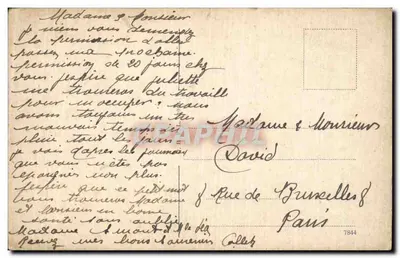 Madame & Monsieur
je viens vous demander
la permission d'aller
passer ma prochaine
permission de 20 jours chez
vous j'espère que Juliette
me trouveras du travaille
pour m'occuper nous
avons toujours un très
mauvais temps
pleut tout les jours
je vais d'après les journaux
que vous n'êtes pas
épargnés non plus
j'espère que ce petit mot
vous trouveras Madame
et Monsieur en bonne
santé sans oublier
Madame
Recevez mes bons souvenirs
Madame & Monsieur
David
8 Rue de Bruxelles 8
Paris
7844